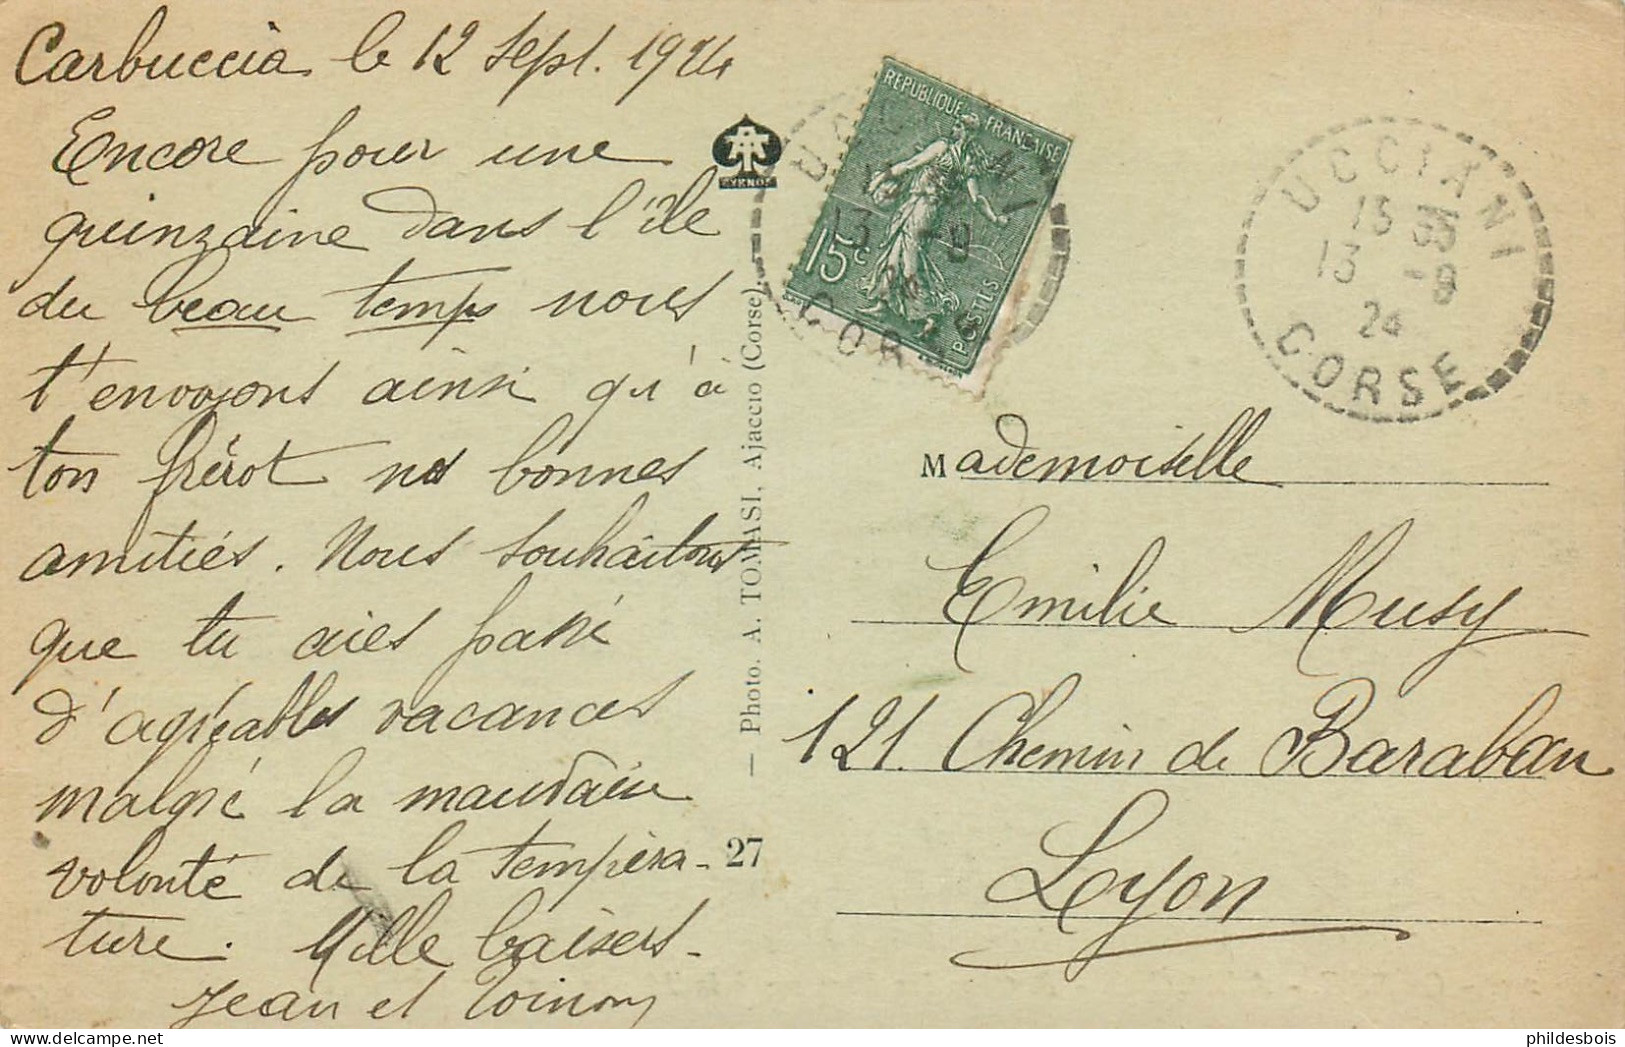 Carbuccia le 12 Sept. 1924
Encore pour une
quinzaine dans l'île
du beau temps nous
t'envoyons ainsi qu'à
ton frérot nos bonnes
amitiés. Nous souhaitons
que tu aies passé
d'agréables vacances
malgré la mauvaise
volonté de la tempéra-
ture. Mille baisers.
Jean et Toinon
CYRNOS
— Photo. A. TOMASI, Ajaccio (Corse).
27
REPUBLIQUE FRANÇAISE
15c
POSTES
UCCIANI
13 -9
24
CORSE
UCCIANI
13 35
13 -9
24
CORSE
Mademoiselle
Emilie Musy
121. Chemin de Baraban
Lyon
phildesbois